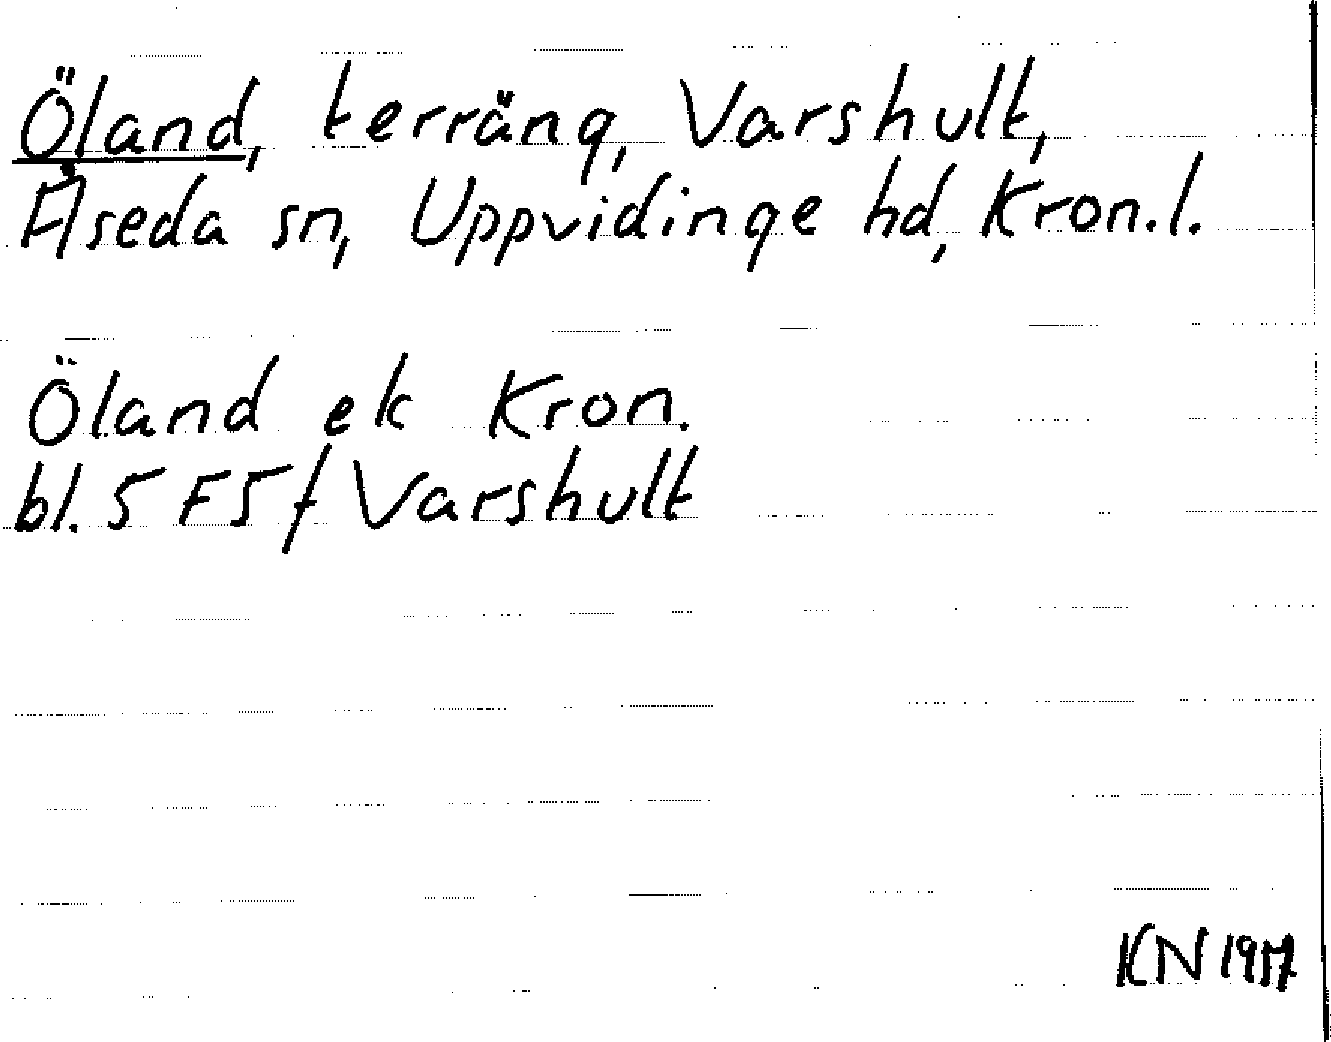 Öland, terräng, Varshult,
Åseda sn, Uppvidinge hd, Kron. l.
Öland ek Kron.
bl. 5 F 5 f Varshult
KN